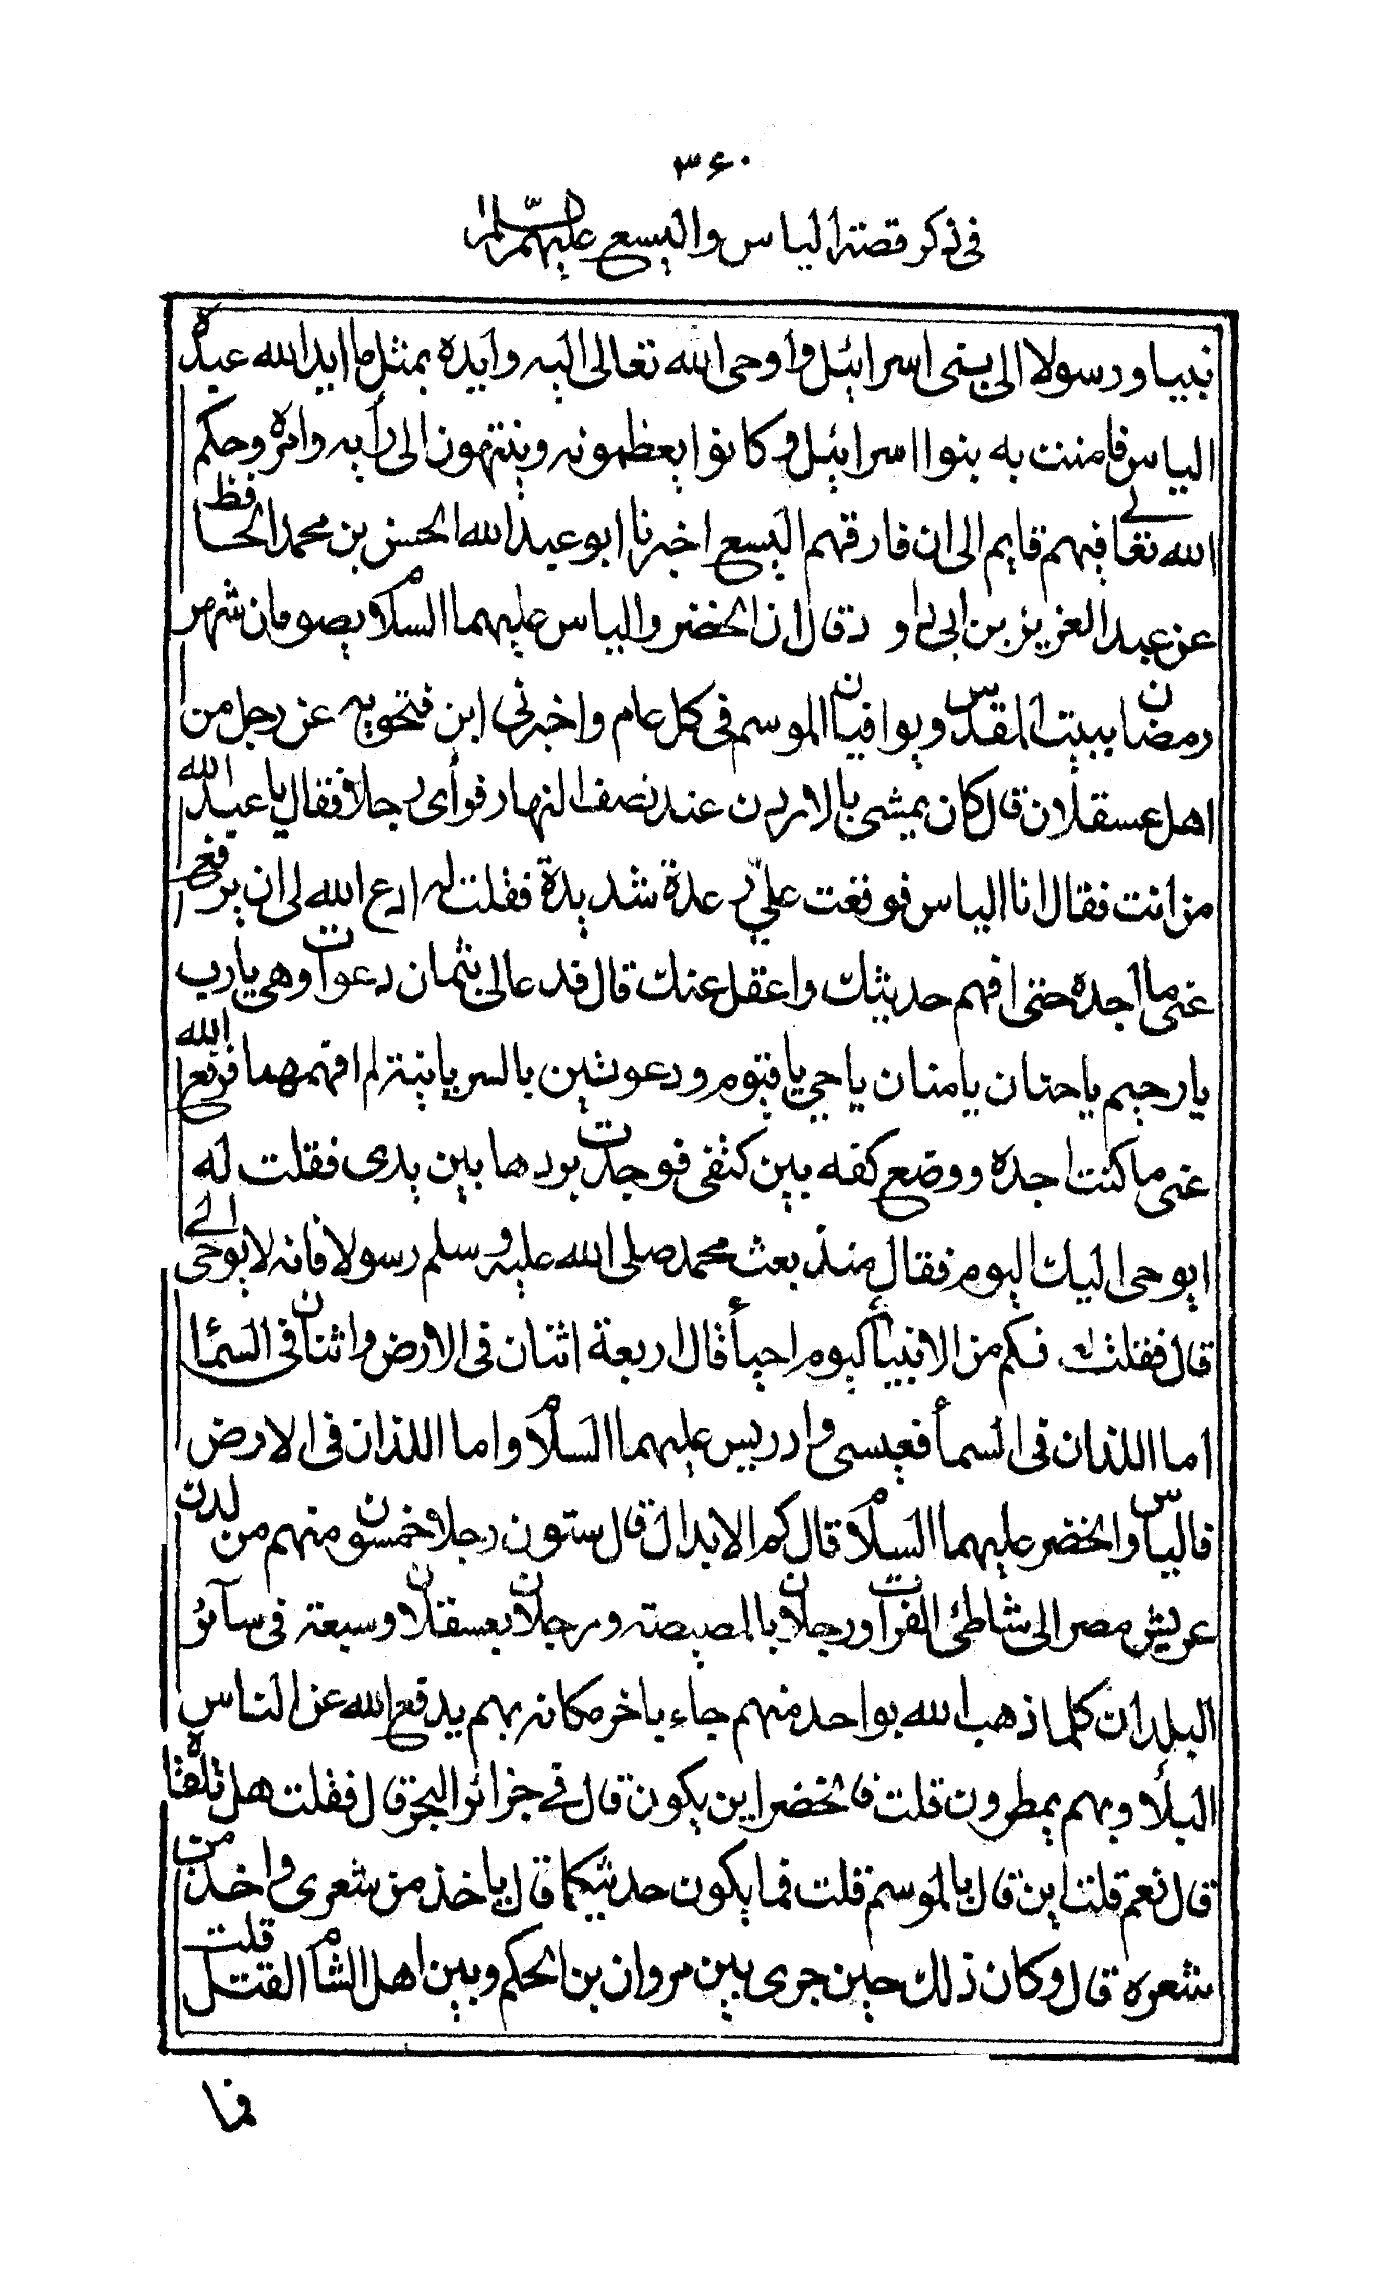 ۳۶۰
فى ذكر قصة الياس واليسع عليهم السلام
نبيا ورسولا الى بنى اسرائيل واوحى الله تعالى اليه وايده بمثل ما ايد الله عبده
الياس فامنت به بنوا اسرائيل وكانوا يعظمونه وينتهون الى رأيه وامره وحكم
الله تعالى فيهم قايم الى ان فارقهم اليسع اخبرنا ابو عبد الله الحسن بن محمد الحافظ
عن عبد العزيز بن ابى راود قال ان الخضر والياس عليهما السلام يصومان شهر
رمضان ببيت المقدس ويوافيان الموسم فى كل عام واخبرنى ابن فتحويه عن رجل من
اهل عسقلان قال كان يمشى بالاردن عند نصف النهار فرأى رجلا فقال يا عبد الله
من انت فقال انا الياس فوقعت علىّ رعدة شديدة فقلت له ادع الله لى ان يرفع
عنى ما اجده حتى افهم حديثك واعقل عنك قال فدعا لى بثمان دعوات وهى يارب
يارحيم ياحنان يامنان ياحي ياقيوم ودعوتين بالسريانية لم افهمهما فرفع الله
عنى ما كنت اجده ووضع كفه بين كتفى فوجدت بردها بين يدى فقلت له
ايوحى اليك اليوم فقال منذ بعث محمد صلى الله عليه وسلم رسولا فانه لا يوحى الى
قال فقلت له فكم من الانبيأ اليوم احيأ قال اربعة اثنان فى الارض واثنان فى السمأ
اما اللذان فى السمأ فعيسى وادريس عليهما السلام واما اللذان فى الارض
فالياس والخضر عليهما السلام قال كم الابدال قال ستون رجلا خمسون منهم من لدن
عريش مصر الى شاطئ الفرات ورجلان بالمصيصة ورجلان بعسقلان وسبعة فى سآئر
البلدان كلما ذهب الله بواحد منهم جاء باخر مكانه بهم يدفع الله عن الناس
البلأ وبهم يمطرون قلت فالخضر اين يكون قال فى جزائر البحر قال فقلت هل تلقاه
قال نعم قلت اين قال بالموسم قلت فما يكون حديثكما قال ياخذ من شعرى واخذ من
شعره قال وكان ذلك حين جرى بين مروان بن الحكم وبين اهل الشام القتل قلت
فما